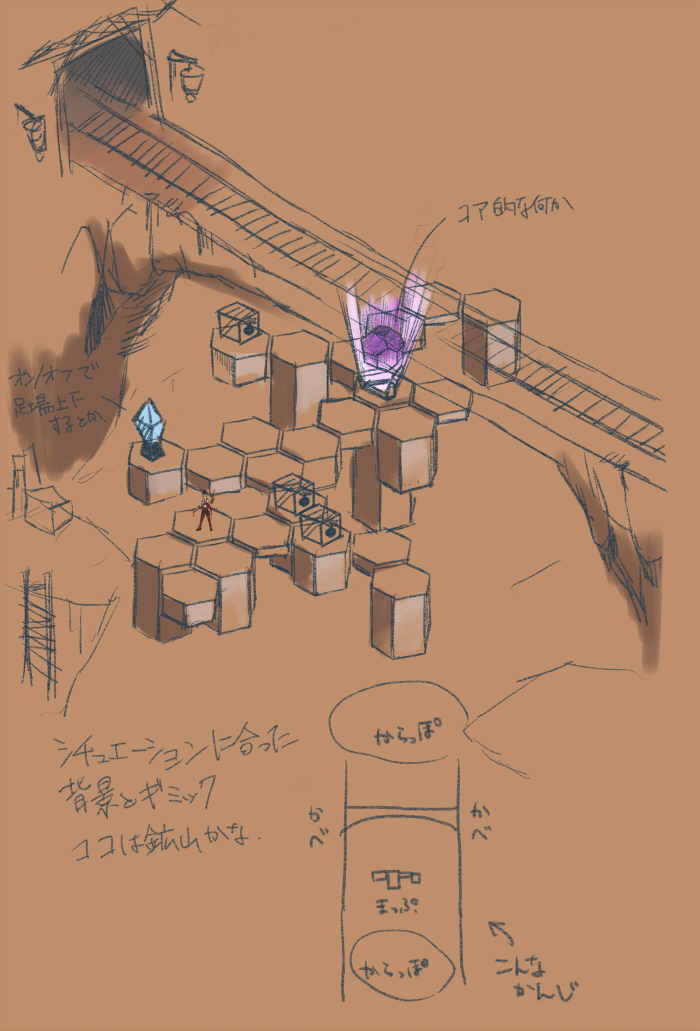 コア的な何か
オン/オフで
足場上下
するとか
シチュエーションに合った
背景とギミック
ココは鉱山かな.
からっぽ
かべ
かべ
まっぷ
からっぽ
こんな
かんじ